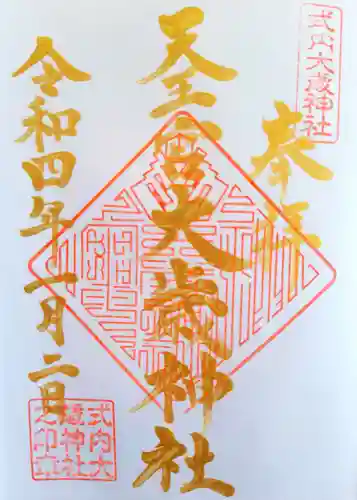 式内大歳神社
奉拝
天王宮大歳神社
令和四年一月二日
式内大
歳神社
之印